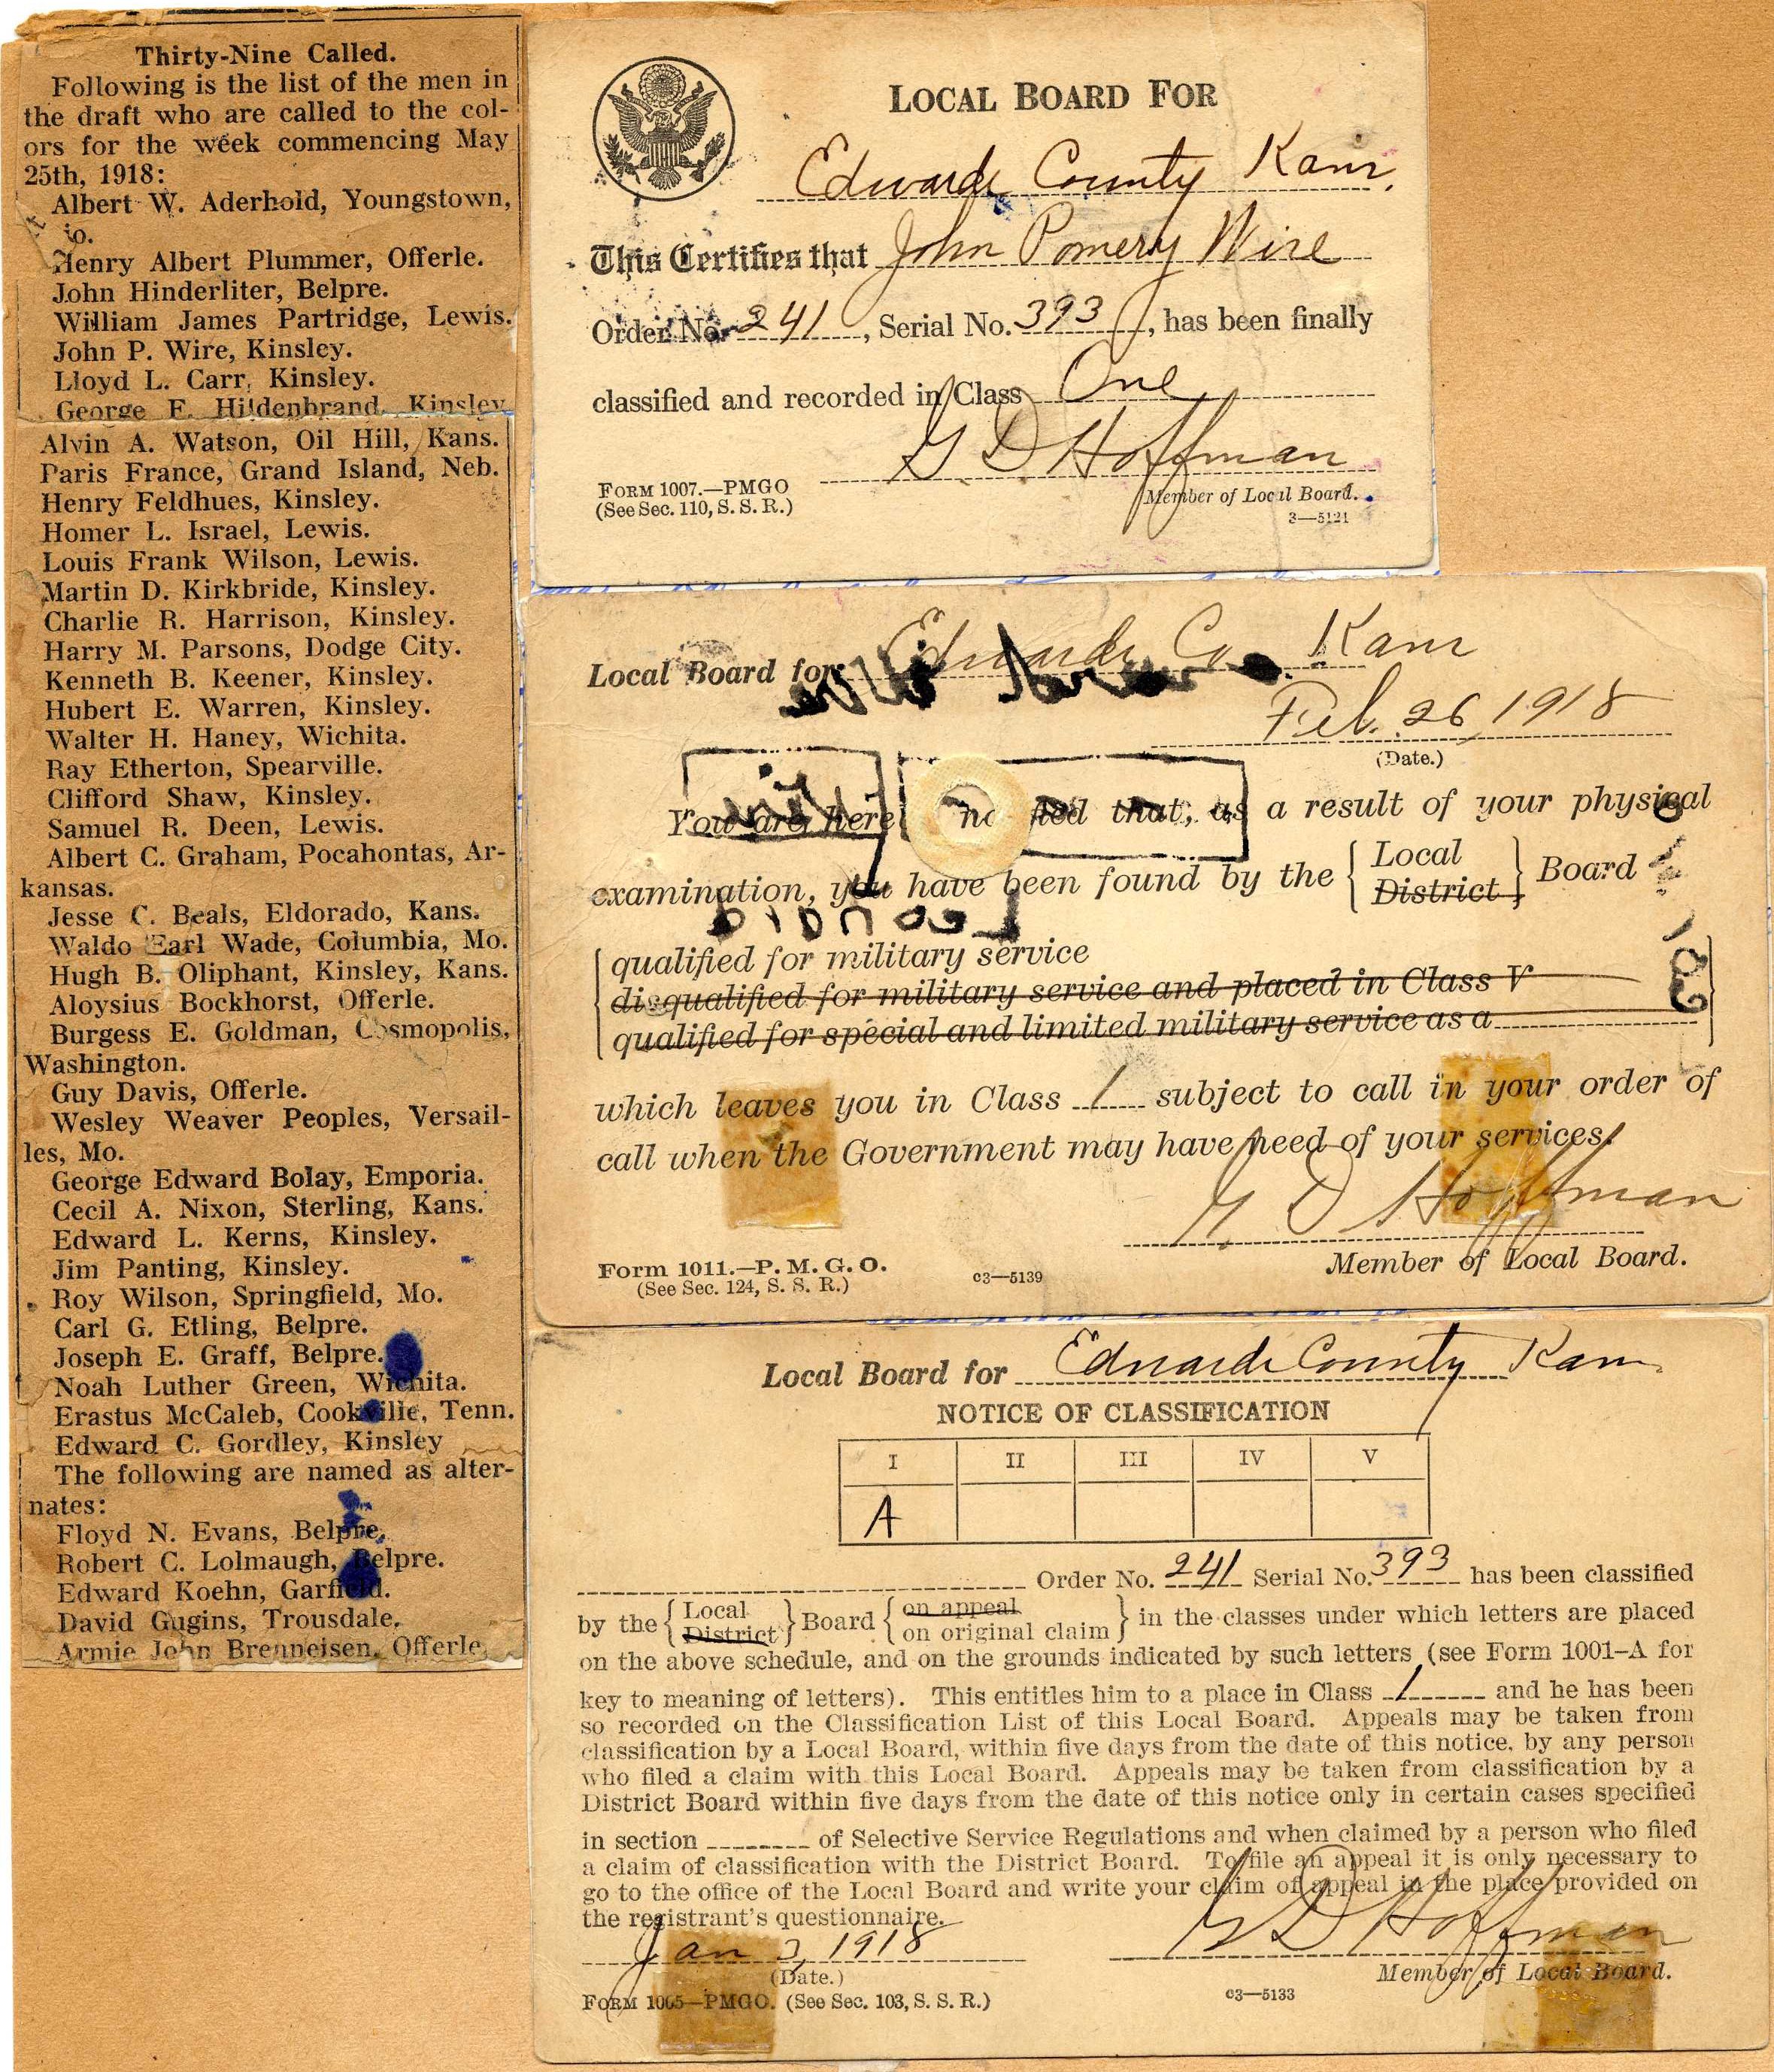 Thirty-Nine Called.
Following is the list of the men in
the draft who are called to the col-
ors for the week commencing May
25th, 1918:
Albert W. Aderhold, Youngstown,
io.
Henry Albert Plummer, Offerle.
John Hinderliter, Belpre.
William James Partridge, Lewis.
John P. Wire, Kinsley.
Lloyd L. Carr, Kinsley.
George E. Hildenbrand, Kinsley
Alvin A. Watson, Oil Hill, Kans.
Paris France, Grand Island, Neb.
Henry Feldhues, Kinsley.
Homer L. Israel, Lewis.
Louis Frank Wilson, Lewis.
Martin D. Kirkbride, Kinsley.
Charlie R. Harrison, Kinsley.
Harry M. Parsons, Dodge City.
Kenneth B. Keener, Kinsley.
Hubert E. Warren, Kinsley.
Walter H. Haney, Wichita.
Ray Etherton, Spearville.
Clifford Shaw, Kinsley.
Samuel R. Deen, Lewis.
Albert C. Graham, Pocahontas, Ar-
kansas.
Jesse C. Beals, Eldorado, Kans.
Waldo Earl Wade, Columbia, Mo.
Hugh B. Oliphant, Kinsley, Kans.
Aloysius Bockhorst, Offerle.
Burgess E. Goldman, Cosmopolis,
Washington.
Guy Davis, Offerle.
Wesley Weaver Peoples, Versail-
les, Mo.
George Edward Bolay, Emporia.
Cecil A. Nixon, Sterling, Kans.
Edward L. Kerns, Kinsley.
Jim Panting, Kinsley.
Roy Wilson, Springfield, Mo.
Carl G. Etling, Belpre.
Joseph E. Graff, Belpre.
Noah Luther Green, Wichita.
Erastus McCaleb, Cookville, Tenn.
Edward C. Gordley, Kinsley
The following are named as alter-
nates:
Floyd N. Evans, Belpre.
Robert C. Lolmaugh, Belpre.
Edward Koehn, Garfield.
David Gugins, Trousdale.
Armie John Brenneisen, Offerle.
LOCAL BOARD FOR
Edwards County Kans.
This Certifies that John Pomery Wire
Order No. 241, Serial No. 393, has been finally
classified and recorded in Class One
G D Hoffman
FORM 1007.—PMGO
(See Sec. 110, S. S. R.)
Member of Local Board.
3—5121
Local Board for Edwards Co. Kans
Feb. 26, 1918
(Date.)
You are here no fied that, as a result of your physical
examination, you have been found by the { Local District } Board
qualified for military service
disqualified for military service and placed in Class V
qualified for special and limited military service as a
which leaves you in Class 1 subject to call in your order of
call when the Government may have need of your services.
G D Hoffman
Member of Local Board.
Form 1011.—P. M. G. O.
(See Sec. 124, S. S. R.)
c3—5139
Local Board for Edwards County Kans.
NOTICE OF CLASSIFICATION
I II III IV V
A
Order No. 241 Serial No. 393 has been classified
by the { Local District } Board { on appeal on original claim } in the classes under which letters are placed
on the above schedule, and on the grounds indicated by such letters (see Form 1001–A for
key to meaning of letters). This entitles him to a place in Class 1 and he has been
so recorded on the Classification List of this Local Board. Appeals may be taken from
classification by a Local Board, within five days from the date of this notice, by any person
who filed a claim with this Local Board. Appeals may be taken from classification by a
District Board within five days from the date of this notice only in certain cases specified
in section of Selective Service Regulations and when claimed by a person who filed
a claim of classification with the District Board. To file an appeal it is only necessary to
go to the office of the Local Board and write your claim of appeal in the place provided on
the registrant's questionnaire.
Jan 3, 1918
(Date.)
G D Hoffman
Member of Local Board.
FORM 1005—PMGO. (See Sec. 103, S. S. R.)
c3—5133